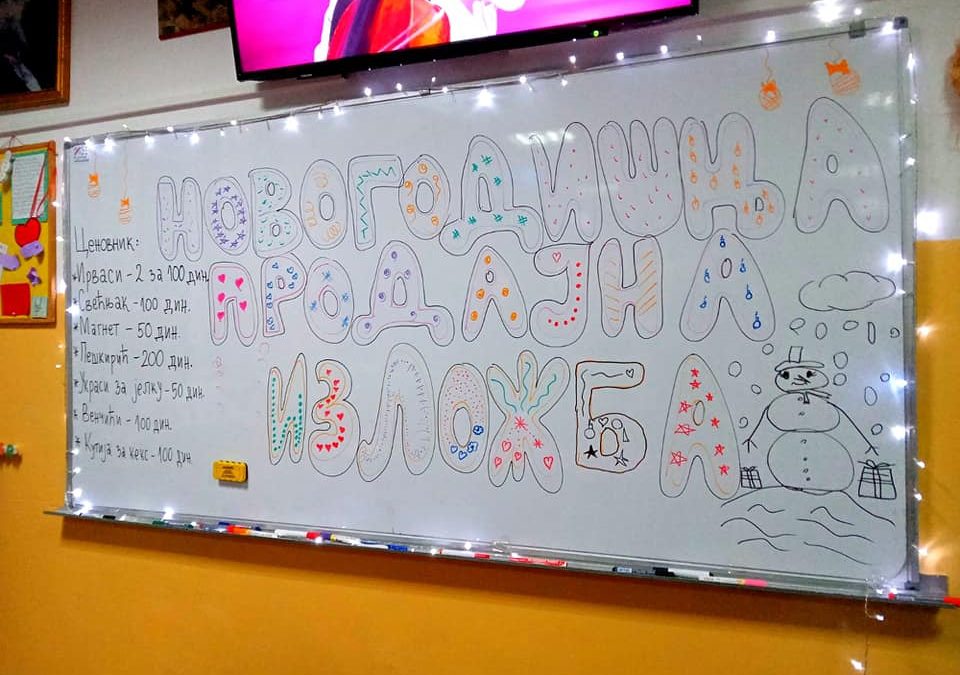 НОВОГОДИШЊА
ПРОДАЈНА
ИЗЛОЖБА
Ценовник:
*Ирваси - 2 за 100 дин
*Свећњак - 100 дин.
*Магнет - 50 дин.
*Пешкирић - 200 дин.
*Украси за јелку - 50 дин.
* Венчићи - 100 дин.
* Кутија за кекс - 100 дин.